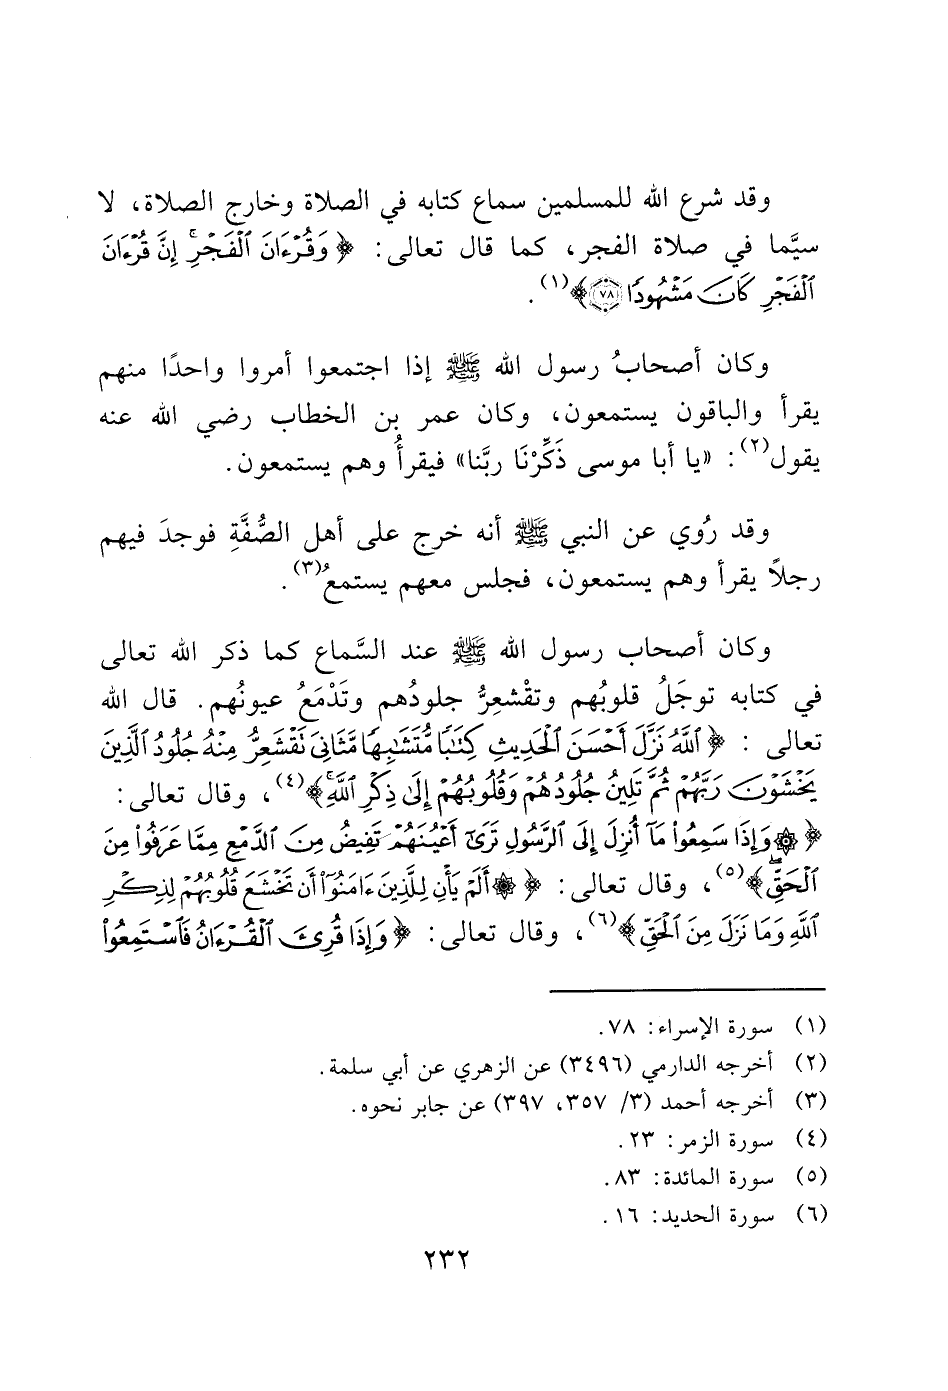 وقد شرع الله للمسلمين سماع كتابه في الصلاة وخارج الصلاة، لا
سيَّما في صلاة الفجر، كما قال تعالى: ﴿ وَقُرْءَانَ ٱلْفَجْرِ ۖ إِنَّ قُرْءَانَ
ٱلْفَجْرِ كَانَ مَشْهُودًا ٧٨﴾(١).
وكان أصحابُ رسول الله ﷺ إذا اجتمعوا أمروا واحدًا منهم
يقرأ والباقون يستمعون، وكان عمر بن الخطاب رضي الله عنه
يقول(٢): «يا أبا موسى ذَكِّرْنَا ربَّنا» فيقرأُ وهم يستمعون.
وقد رُوي عن النبي ﷺ أنه خرج على أهل الصُّفَّةِ فوجدَ فيهم
رجلاً يقرأ وهم يستمعون، فجلس معهم يستمعُ(٣).
وكان أصحاب رسول الله ﷺ عند السَّماع كما ذكر الله تعالى
في كتابه توجَلُ قلوبُهم وتقْشعِرُّ جلودُهم وتَدْمَعُ عيونُهم. قال الله
تعالى : ﴿ ٱللَّهُ نَزَّلَ أَحْسَنَ ٱلْحَدِيثِ كِتَٰبًا مُّتَشَٰبِهًا مَّثَانِىَ تَقْشَعِرُّ مِنْهُ جُلُودُ ٱلَّذِينَ
يَخْشَوْنَ رَبَّهُمْ ثُمَّ تَلِينُ جُلُودُهُمْ وَقُلُوبُهُمْ إِلَىٰ ذِكْرِ ٱللَّهِ ۚ﴾(٤)، وقال تعالى:
﴿ ۞ وَإِذَا سَمِعُوا۟ مَآ أُنزِلَ إِلَى ٱلرَّسُولِ تَرَىٰٓ أَعْيُنَهُمْ تَفِيضُ مِنَ ٱلدَّمْعِ مِمَّا عَرَفُوا۟ مِنَ
ٱلْحَقِّ ۖ﴾(٥)، وقال تعالى: ﴿ ۞ أَلَمْ يَأْنِ لِلَّذِينَ ءَامَنُوٓا۟ أَن تَخْشَعَ قُلُوبُهُمْ لِذِكْرِ
ٱللَّهِ وَمَا نَزَلَ مِنَ ٱلْحَقِّ ﴾(٦)، وقال تعالى: ﴿ وَإِذَا قُرِئَ ٱلْقُرْءَانُ فَٱسْتَمِعُوا۟
(١) سورة الإسراء: ٧٨.
(٢) أخرجه الدارمي (٣٤٩٦) عن الزهري عن أبي سلمة.
(٣) أخرجه أحمد (٣/ ٣٥٧، ٣٩٧) عن جابر نحوه.
(٤) سورة الزمر: ٢٣.
(٥) سورة المائدة: ٨٣.
(٦) سورة الحديد: ١٦.
٢٣٢